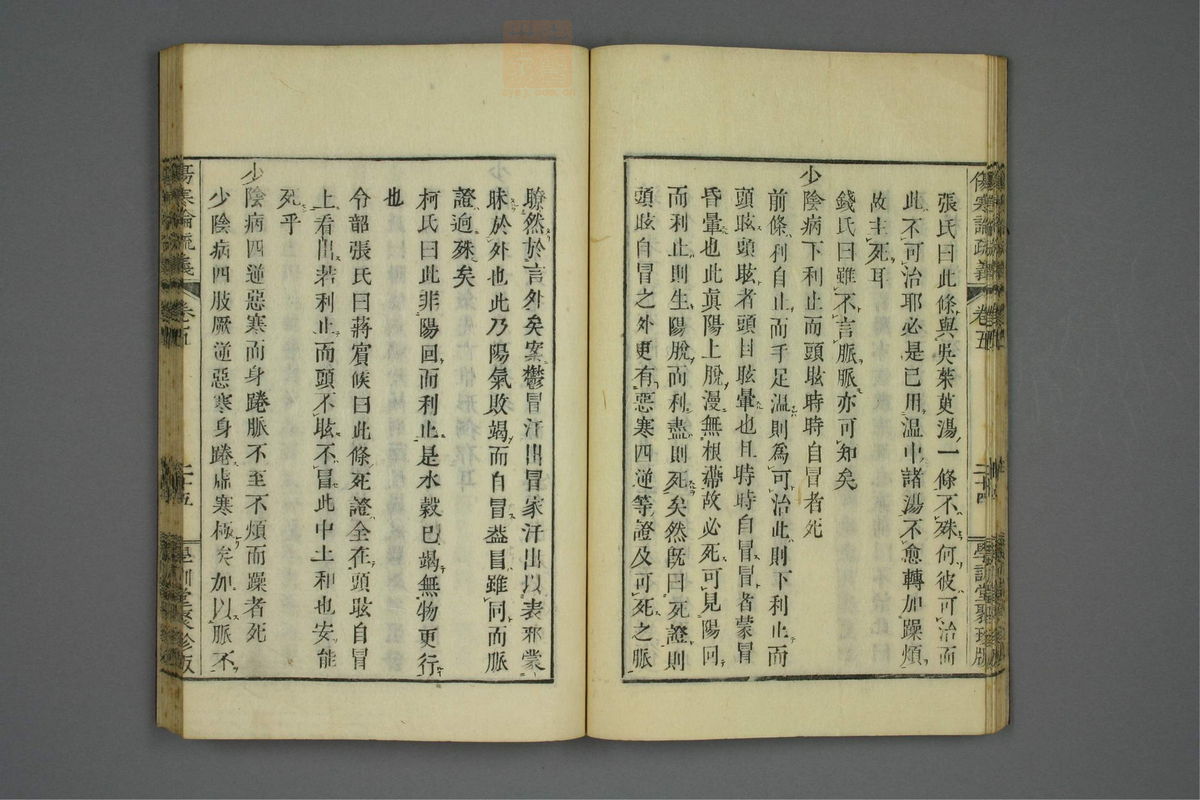 傷寒論疏義 卷五 二十四 學訓堂聚珍版
張氏曰此條與吳茱萸湯一條不殊何彼可治而
此不可治耶必是已用温中諸湯不愈轉加躁煩
故主死耳
錢氏曰雖不言脈脈亦可知矣
少陰病下利止而頭眩時時自冒者死
前條利自止而手足温則爲可治此則下利止而
頭眩頭眩者頭目眩暈也且時時自冒冒者蒙冒
昏暈也此眞陽上脫漫無根蒂故必死可見陽回
而利止則生陽脫而利盡則死矣然旣曰死證則
頭眩自冒之外更有惡寒四逆等證及可死之脈
瞭然於言外矣案鬱冒汗出冒家汗出以表邪蒙
昧於外也此乃陽氣敗竭而自冒葢冒雖同而脈
證逈殊矣
柯氏曰此非陽回而利止是水穀已竭無物更行
也
令韶張氏曰蔣賓候曰此條死證全在頭眩自冒
上看出若利止而頭不眩不冒此中土和也安能
死乎
少陰病四逆惡寒而身踡脈不至不煩而躁者死
少陰病四肢厥逆惡寒身踡虛寒極矣加以脈不
傷寒論疏義 卷五 二十五 學訓堂聚珍版